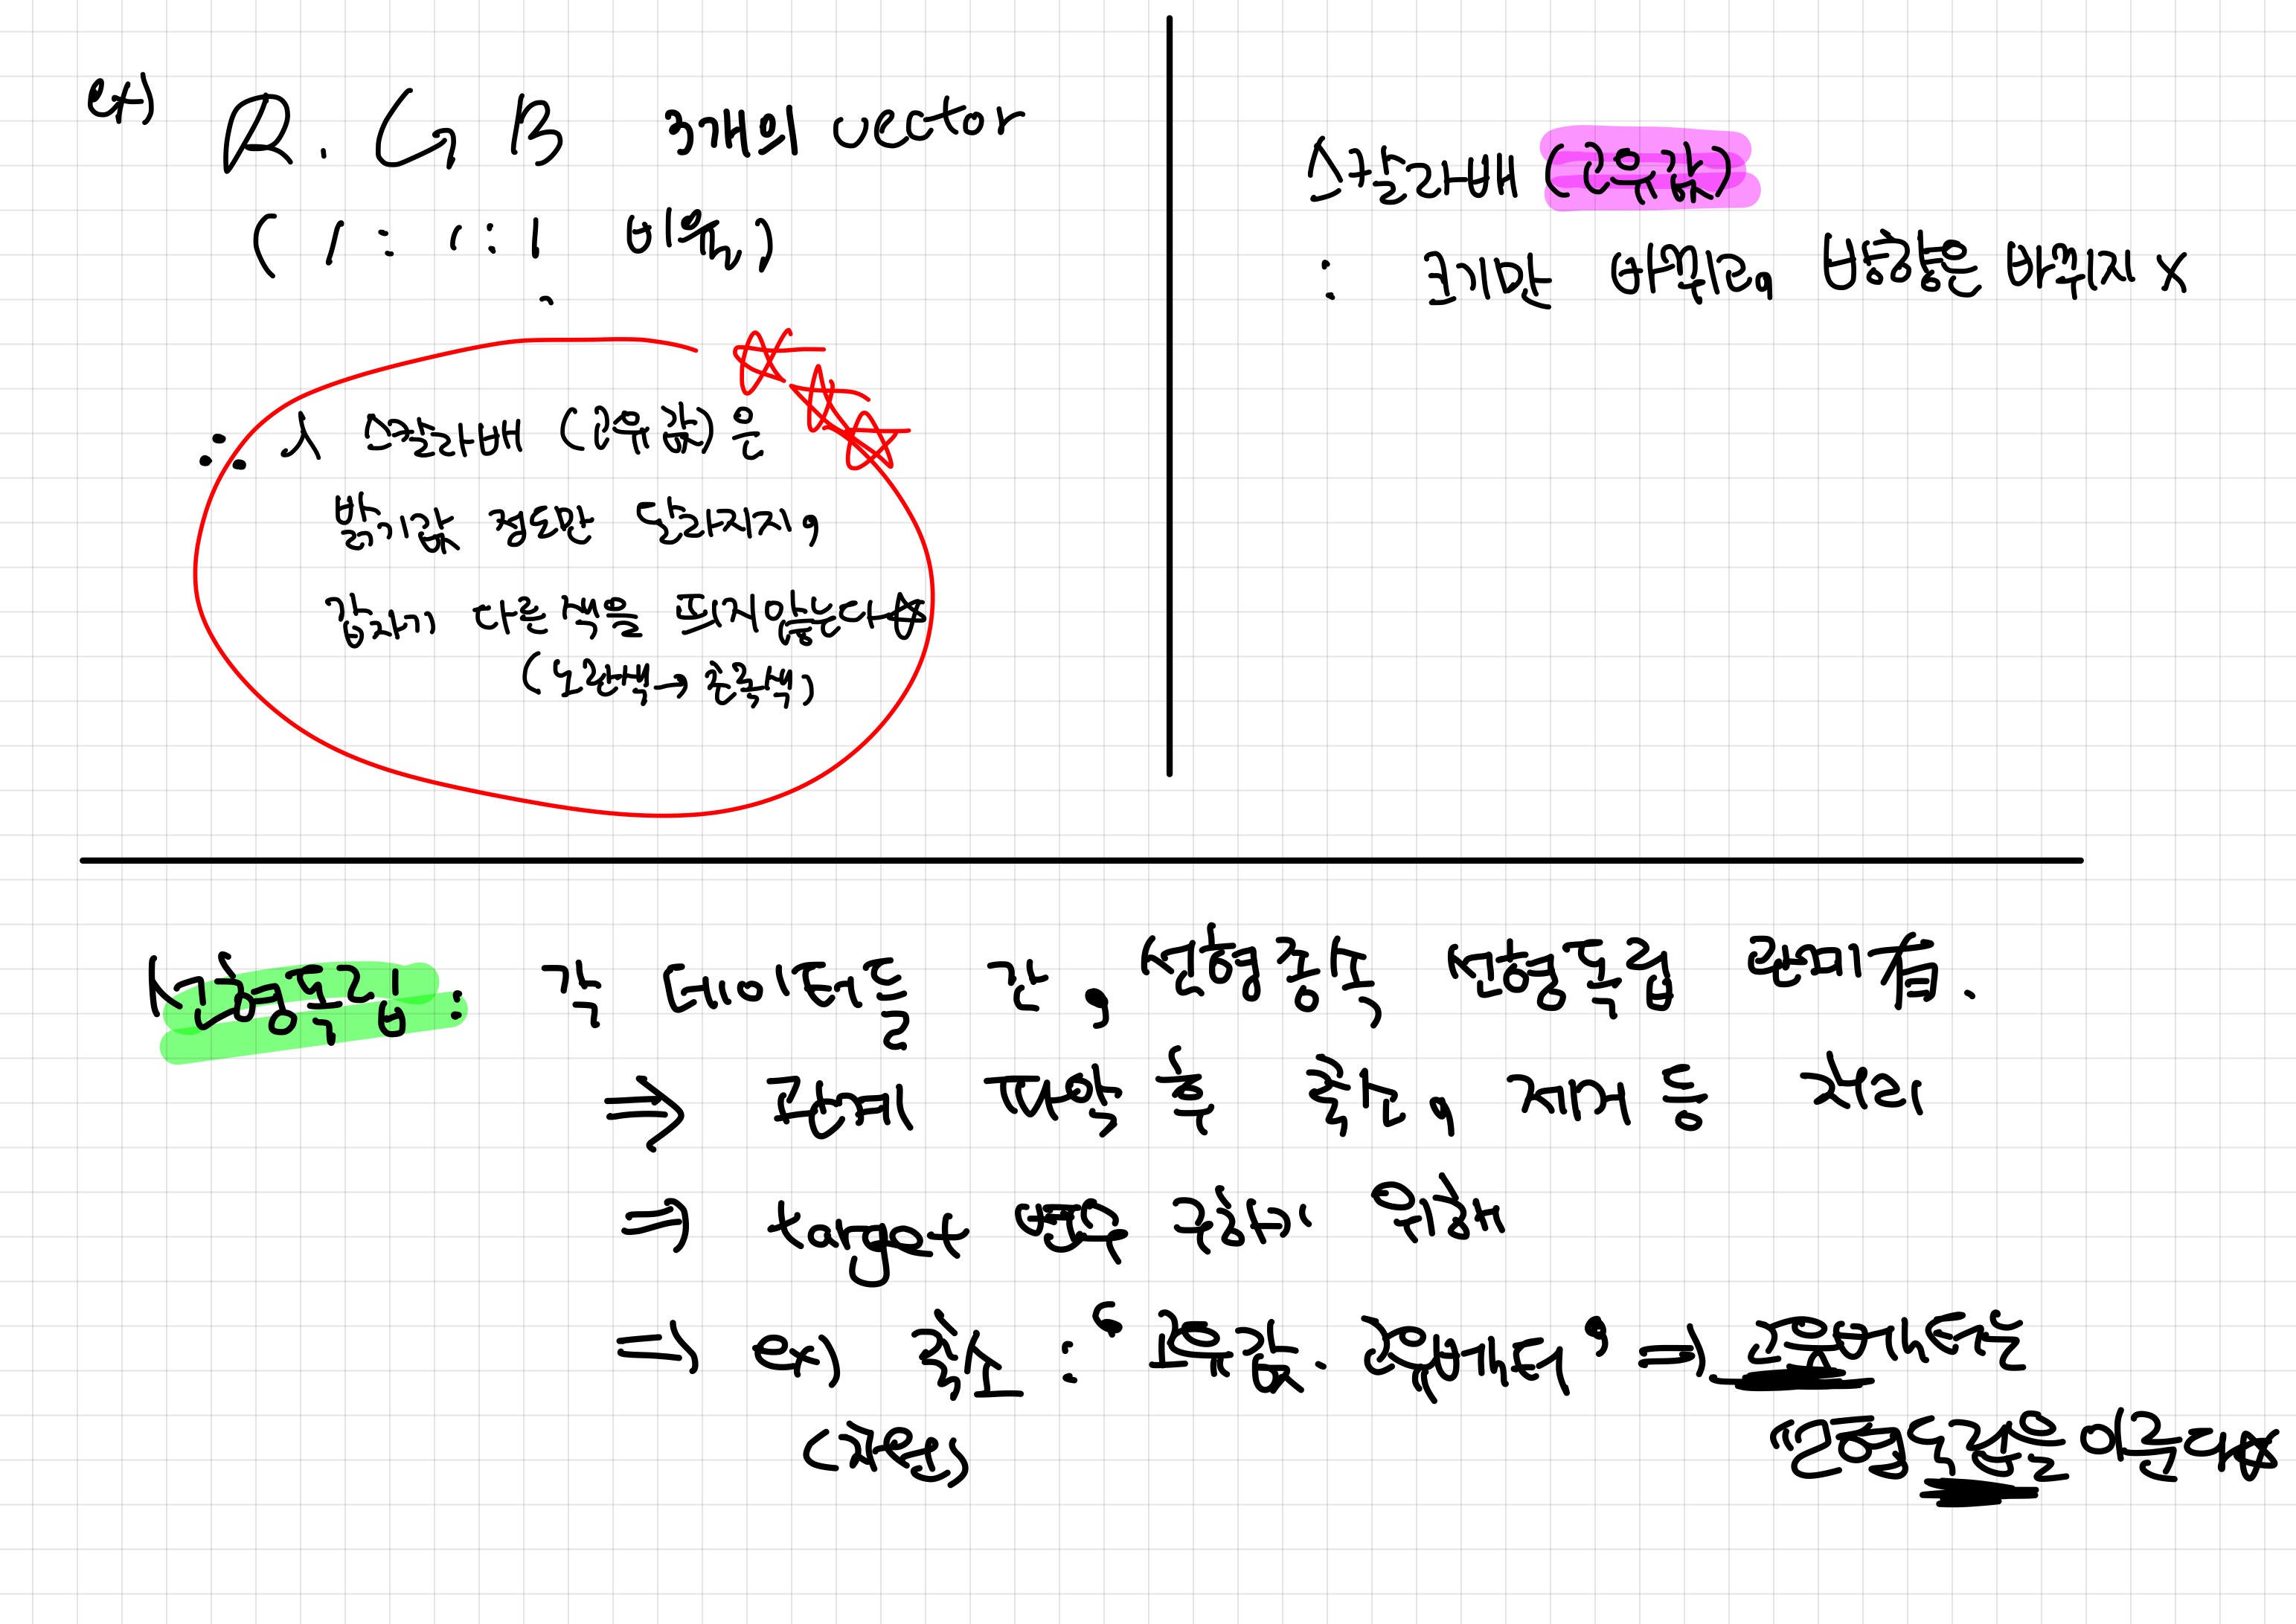 ex) R. G, B 3개의 vector
( 1 : 1 : 1 비율, )
∴ λ 스칼라배 (고유값)은
밝기값 정도만 달라지지,
갑자기 다른 색을 띄지않는다☆
( 노란색 → 초록색 )
스칼라배 (고유값)
: 크기만 바뀌고, 방향은 바뀌지 X
선형독립 : 각 데이터들 간, 선형종속, 선형독립 관계有.
⇒ 관계 파악 후 축소, 제거 등 처리
⇒ target 변수 구하기 위해
⇒ ex) 축소 : '고유값. 고유벡터' ⇒ 고유벡터는
(차원)
선형독립을 이룬다☆